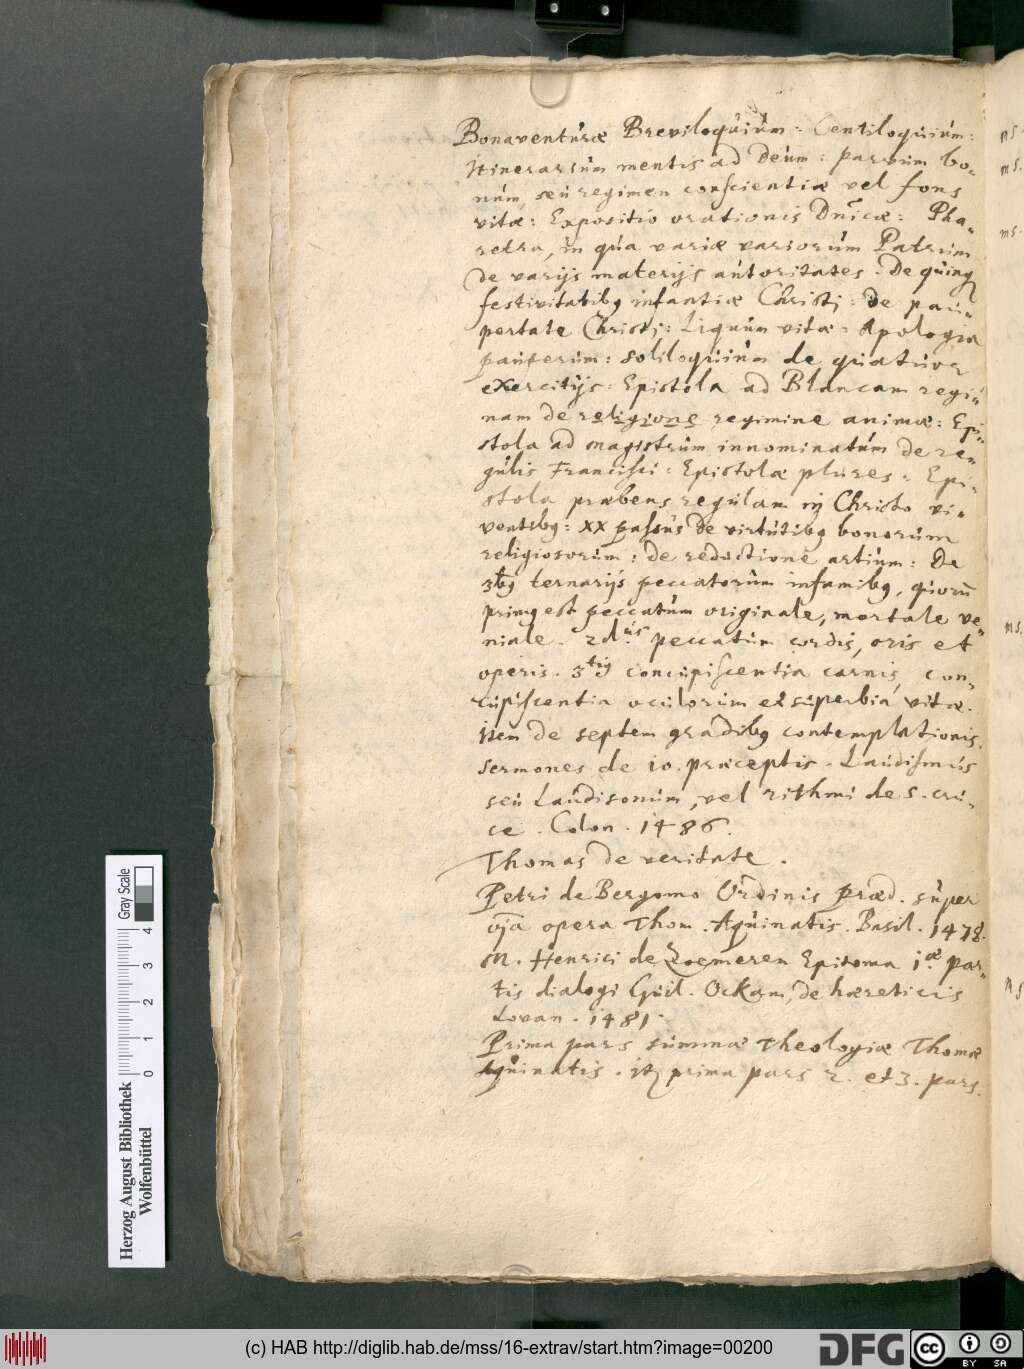 Bonaventuræ Breviloquium: Centiloquium:
Itinerarium mentis ad Deum: parvum bo-
num, seu regimen conscientiæ vel fons
vitæ: Expositio orationis Dnicæ: Pha-
retra, in qua variæ variorum Patrum
de varijs materijs autoritates. De quinq
festivitatibq infantiæ Christi: de pau-
pertate Christi: Lignum vitæ: Apologia
pauperum: soliloquium de quatuor
exercitijs: Epistola ad Blancam regi-
nam de religione regimine animæ: Epi-
stola ad magistrum innominatum de re-
gulis Francisci: Epistolæ plures: Epi-
stola præbens regulam in Christo vi-
ventibq: XX passus de virtutibq bonorum
religiosorum: de reductione artium: De
3bq ternarijs peccatorum infamibq, quoru
primq est peccatum originale, mortale ve-
niale. 2dus peccatum cordis, oris et
operis. 3tiq concupiscentia carnis, con-
cupiscentia oculorum et superbia vitæ.
Item de septem gradibq contemplationis.
Sermones de 10. præceptis. Laudismus
seu Laudisonum, vel rithmi de S. cru-
ce. Colon. 1486.
Thomas de veritate.
Petri de Bergomo Ordinis Præd. super
oja opera Thom. Aquinatis. Basil. 1478.
M. Henrici de Zoemeren Epitoma 1æ par-
tis dialogi Guil. Ockam, de hæreticis
Lovan. 1481.
Prima pars summæ Theologiæ Thomæ
Aquinatis. It prima pars 2. et 3. pars.
ms.
ms.
ms.
ms.
ms
Herzog August Bibliothek
Wolfenbüttel
0 1 2 3 4
Gray Scale
(c) HAB http://diglib.hab.de/mss/16-extrav/start.htm?image=00200
DFG
cc BY SA